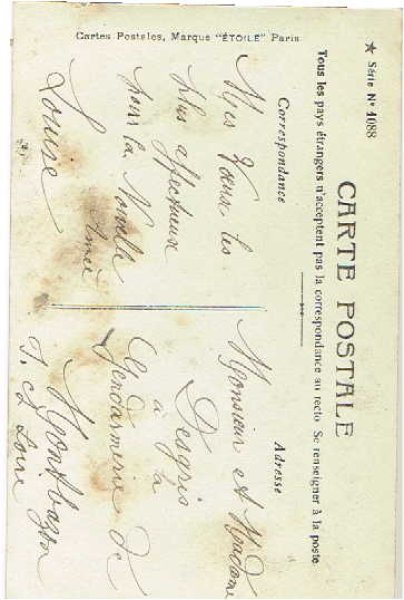 ★ Série Nº 4088
CARTE POSTALE
Tous les pays étrangers n'acceptent pas la correspondance au recto Se renseigner à la poste
Correspondance
Mes Vœux les
plus affectueux
pour la Nouvelle
Année
Louise
Adresse
Monsieur et Madame
Desgris
à la
Gendarmerie de
Montbazon
I. et Loire
Cartes Postales, Marque "ÉTOILE" Paris